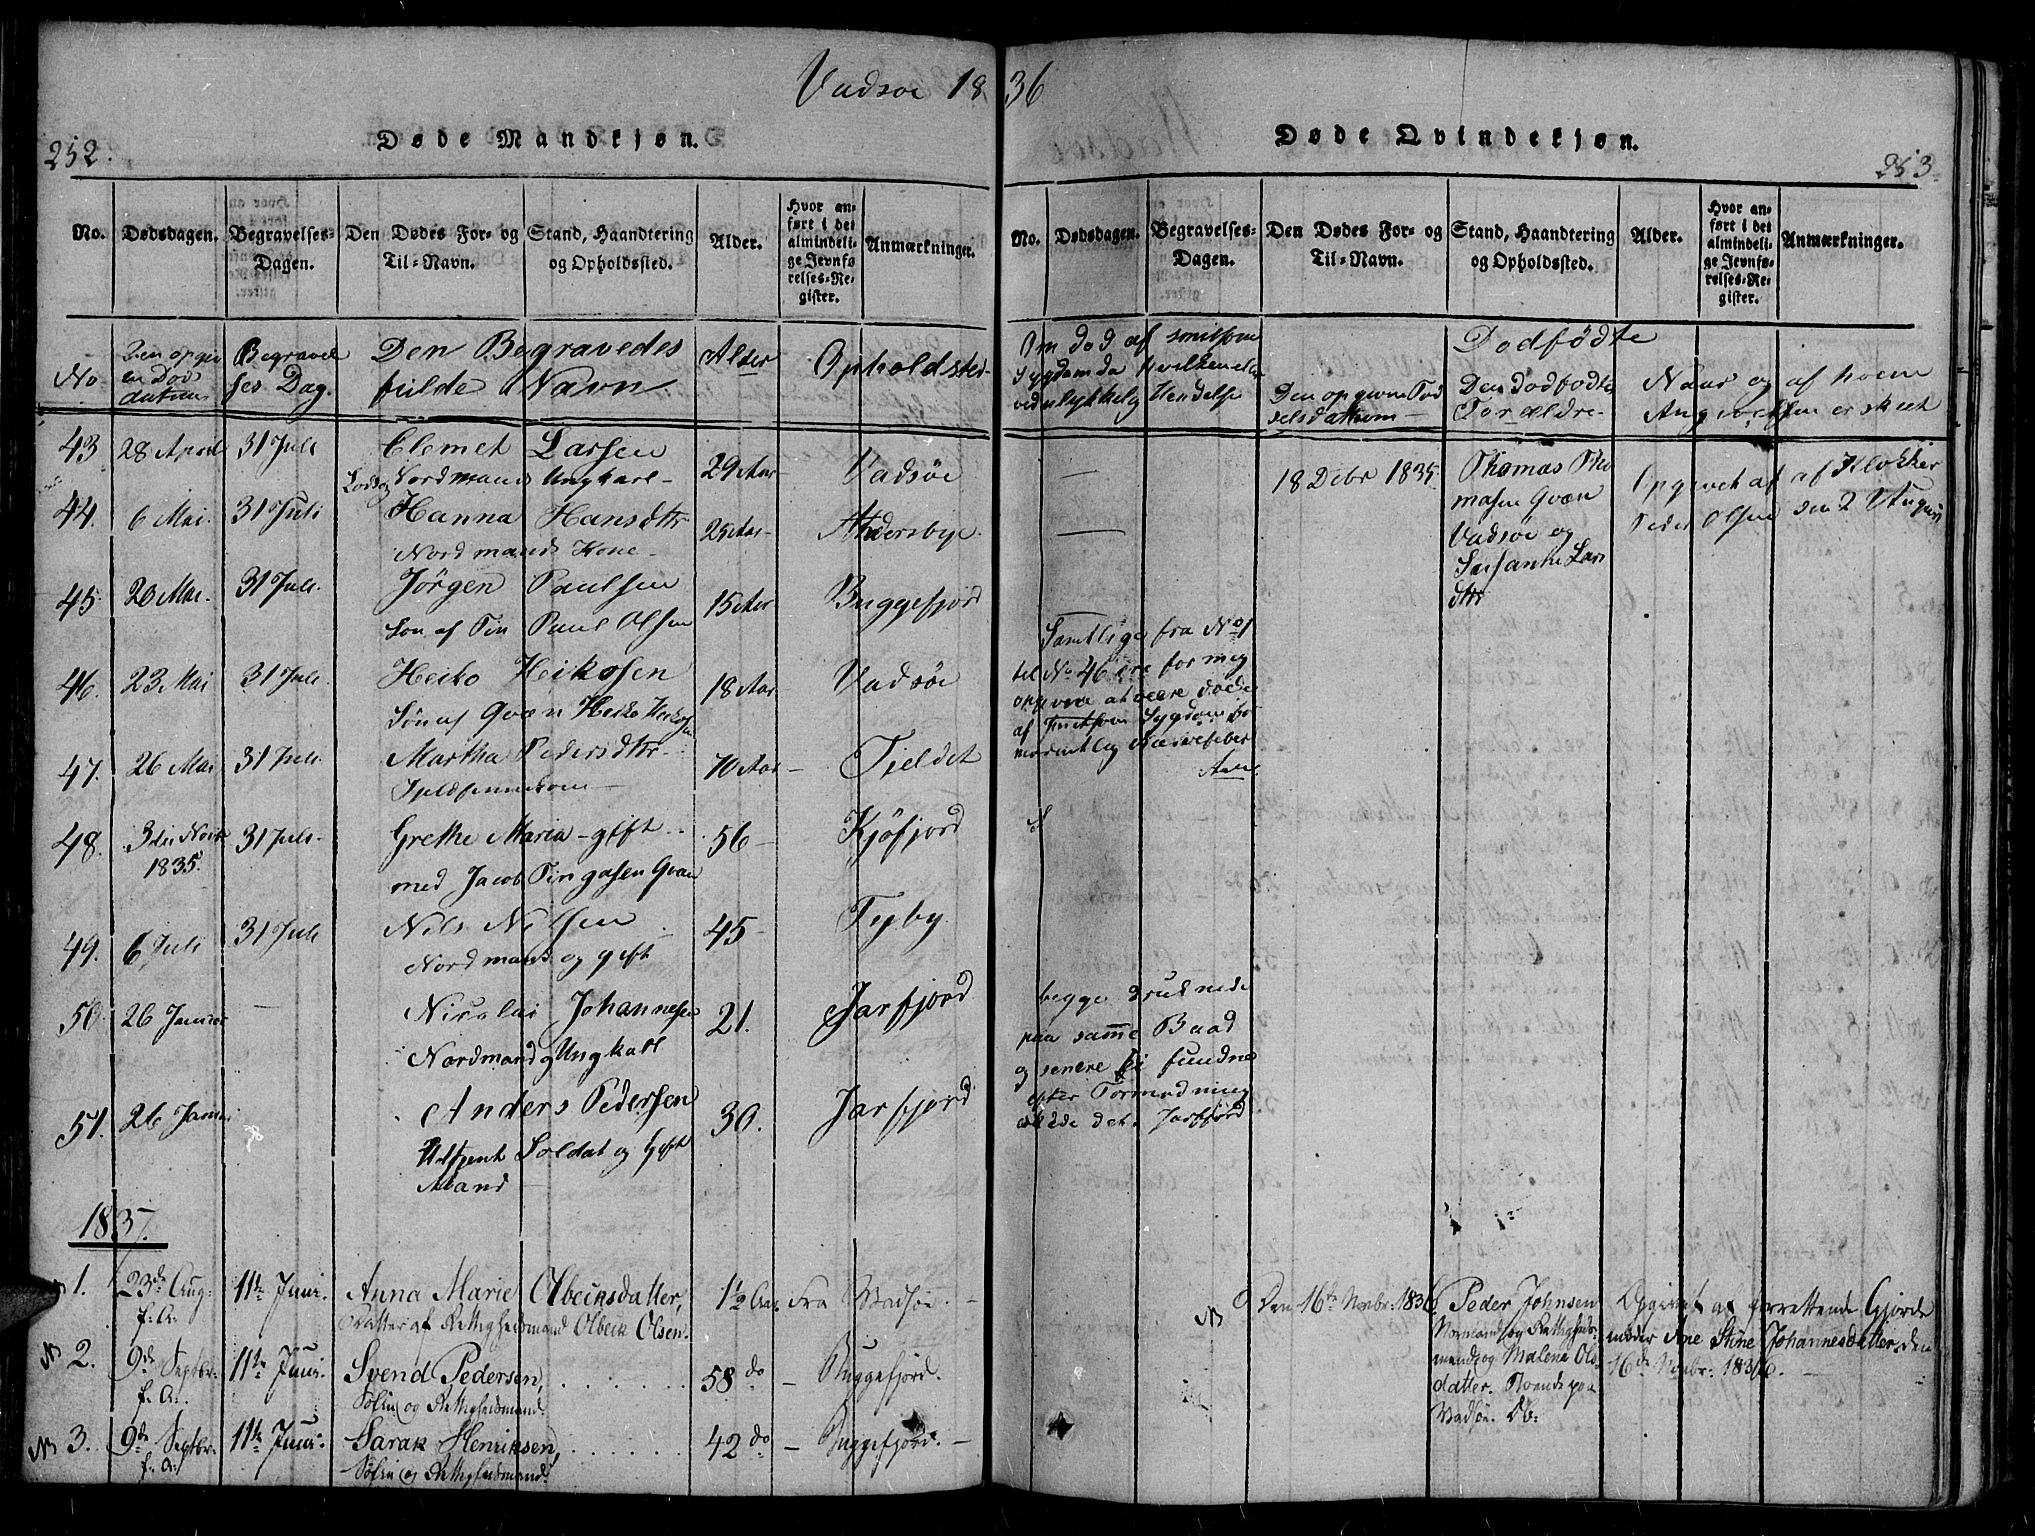 Vadsøe 1836
252.
Døde Mandkjøn.
No. Dødsdagen. Begravelses-Dagen. Den Dødes For- og Til-Navn. Stand, Haandtering og Opholdssted. Alder. Hvor anført i det almindelige Jevnførelses-Register. Anmærkninger.
No Den opgivne Døds datum Begravelses Dag. Den Begravedes fulde Navn Alder Opholdsted
43 28 April 31 Juli Clemet Larsen 29 Aar Vadsøe
Nordmand Ungkarl
44. 6 Mai. 31 Juli Hanna Hansdttr 25 Aar Andersbye.
Nordmands Kone
45. 20 Mai. 31 Juli. Jørgen Paulsen 15 Aar Buggefjord
Søn af Fin Paul Olsen
46. 23 Mai 31 Juli. Heiko Heikosen 18 Aar Vadsøe
Søn af Qvæn Heiko Heikosen
47. 26 Mai 31 Juli Martha Pedersdttr 70 Aar Fieldet
48. 3die Novbr 1835. 31 Juli Grethe Maria gift 56 Kjøfjord
med Jacob Qvæn
49. 6 Juli 31 Juli Nils Nilsen 45 Fyby.
Nordmand og gift
50. 26 Januar Nicolai Johannesen 21. Jarfjord
Nordmand og Ungkall
51. 26 Januar Anders Pedersen 30. Jarfjord
Udtjent Soldat og Gift
Mand
1837.
NB 1. 23de Aug f: A: 11te Juni. Anna Marie Olbeiksdatter, 1½ Aar Fra Wadsøe.
Datter af Rettighedsmand Olbeik Olsen.
NB 2. 9de Septbr: f: A: 11te Juni. Svend Pedersen, 58 do Buggefjord.
Søfin og Rettighedsmand.
NB 3. 9de Septbr: f: A: 11te Juni. Sarak Henriksen, 42 do Buggefjord.
Søfin og Rettighedsmand.
Døde Qvindekjøn.
253.
No. Dødsdagen. Begravelses-Dagen. Den Dødes For- og Til-Navn. Stand, Haandtering og Opholdssted. Alder. Hvor anført i det almindelige Jevnførelses-Register. Anmærkninger.
Om død af smitsom
Sygdom da hvilken eller
ved ulykkelig Hendelse
Den opgivne Fødselsdatum
Dødfødte
Den dødfødtes Forældre
Naar og af hvem
Angivelsen er skeet
18 Debr 1835.
Thomas Thomasen Qvæn
Vadsøe og
Susanne Larsdttr
Opgivet af af Klokker
Peder Olsen den 2 August
Samtlige fra No 1
til No 46 ere for mig
opgivne at være døde
af smitsom Sygdom
Nervefeber
begge druknede
paa samme Baad
og senere ei fundne
efter Formodning
det. Jarfjord
NB
Den 16te Novbr: 1836.
Peder Johnsen
Normand og Rettighedsmand og Malena Olsdatter.
Wadsøe.
Opgivet af forrettende Gjordemoder Ane Stine Johannesdatter, den
16de Novbr: 1836.